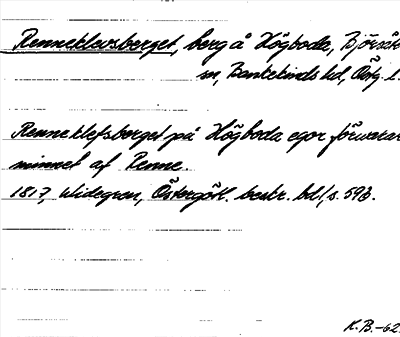 Renneklevsberget, berg å Högboda, Björsät
sn, Bankekinds hd, Östg. l.
Renneklefsberget på Högboda egor förwarar
minnet af Renne.
1817, Widegren, Östergötl. beskr. bd 1, s. 593.
K.B.-62.